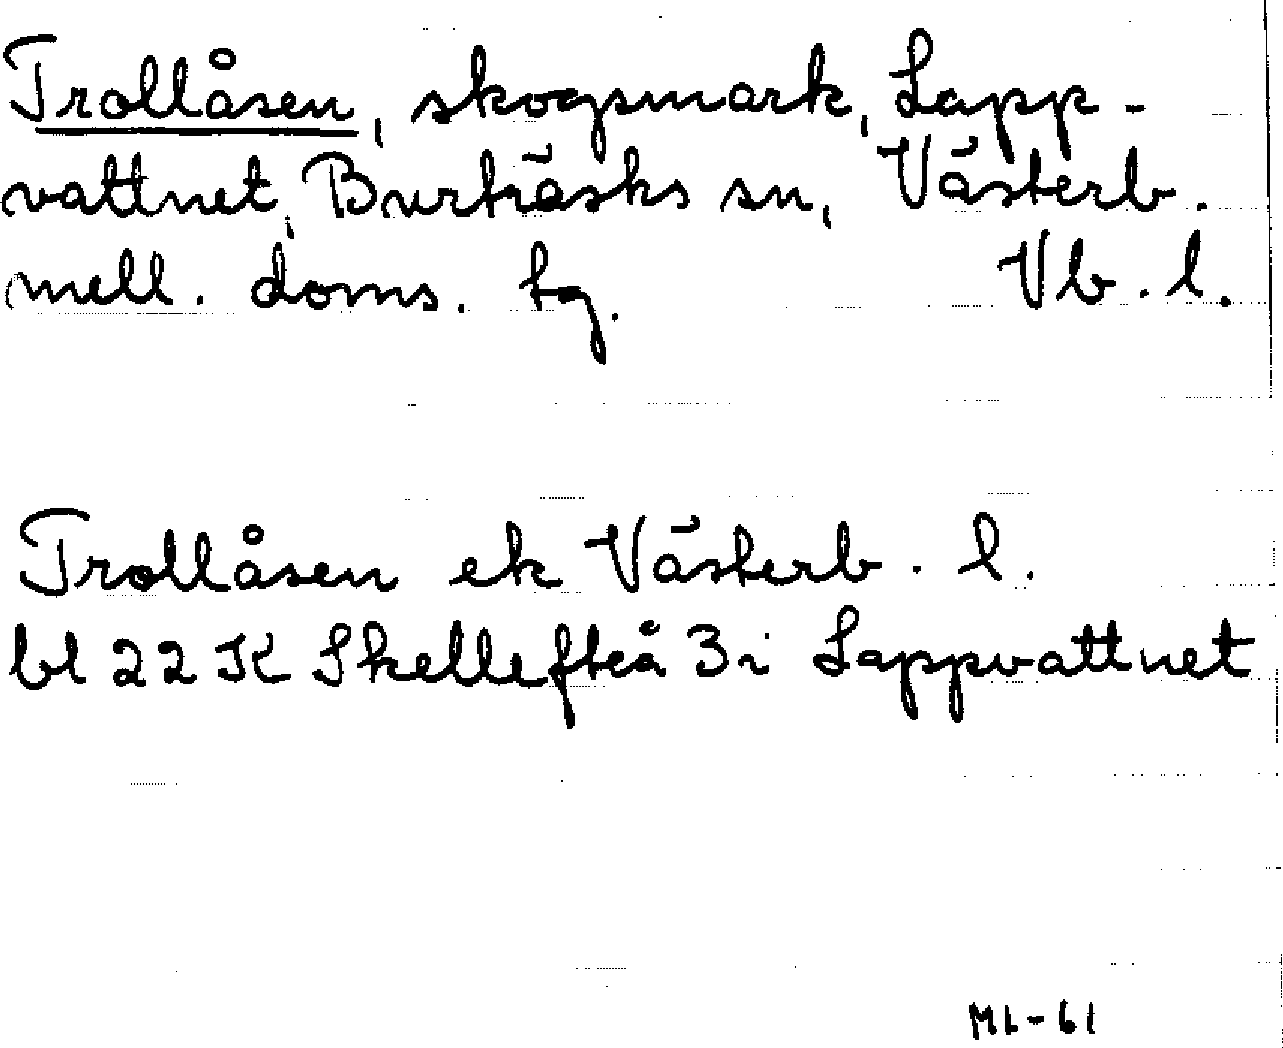 Trollåsen, skogsmark, Lapp-
vattnet, Burträsks sn, Västerb.
mell. doms. tg. Vb. l.
Trollåsen ek Västerb. l.
bl 22 K Skellefteå 3i Lappvattnet
ML-61